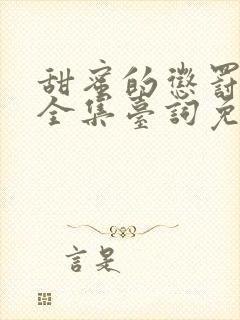 甜蜜的懲罰
全集臺詞免
言是